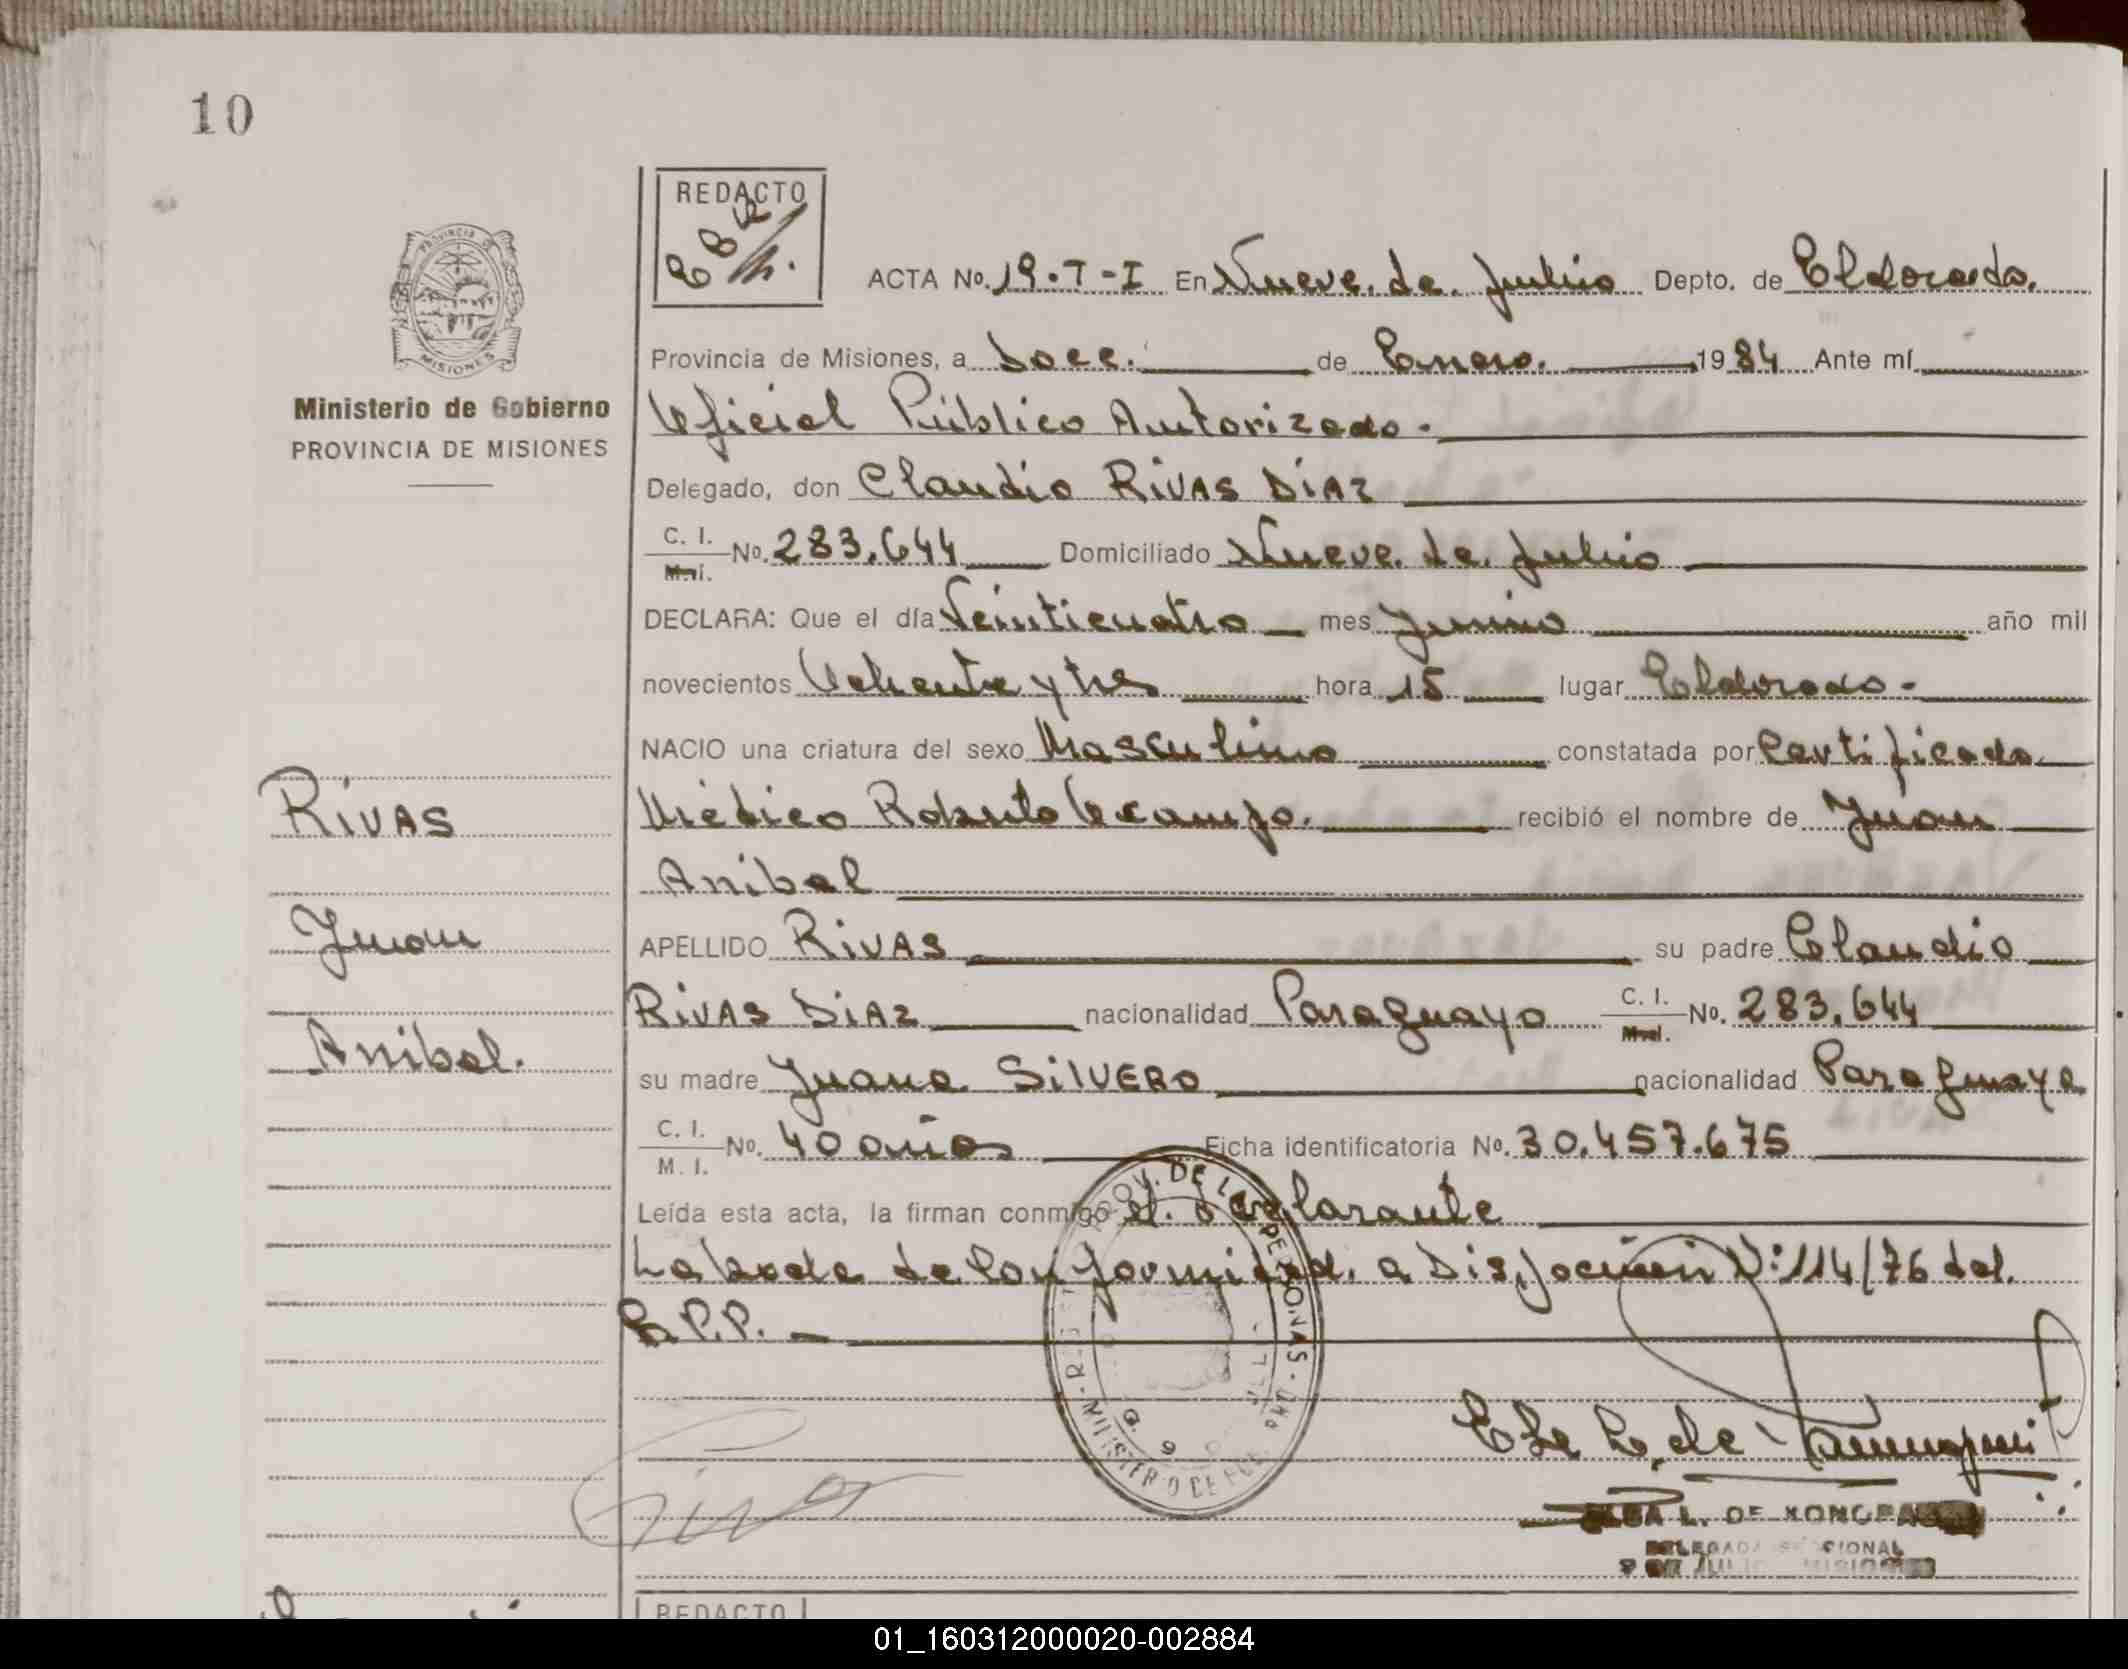 10
REDACTO
ACTA No. 19-T-I En Nueve de Julio Depto. de Eldorado.
Provincia de Misiones, a Doce. de Enero. 1984 Ante mí
Oficial Público Autorizado.
Delegado, don Claudio RIVAS DIAZ
C. I. M. I. No. 283.644 Domiciliado Nueve de Julio
DECLARA: Que el día Veinticuatro mes Junio año mil
novecientos Ochenta y tres hora 15 lugar Eldorado.
NACIO una criatura del sexo Masculino constatada por Certificado
Médico Roberto Ocampo. recibió el nombre de Juan
Anibal
APELLIDO RIVAS su padre Claudio
RIVAS DIAZ nacionalidad Paraguayo C. I. M. I. No. 283.644
su madre Juana SILVERO nacionalidad Paraguaya
C. I. M. I. No. 40 años Ficha identificatoria No. 30.457.675
Leída esta acta, la firman conmigo el declarante
Labrada de Conformidad a Disposición Nº 114/76 del
R.P.P.
PROVINCIA DE MISIONES
Ministerio de Gobierno
PROVINCIA DE MISIONES
RIVAS
Juan
Anibal.
PROV. DE LAS PERSONAS
MINISTERIO DE
L. DE
DELEGADA
REDACTO
01_160312000020-002884